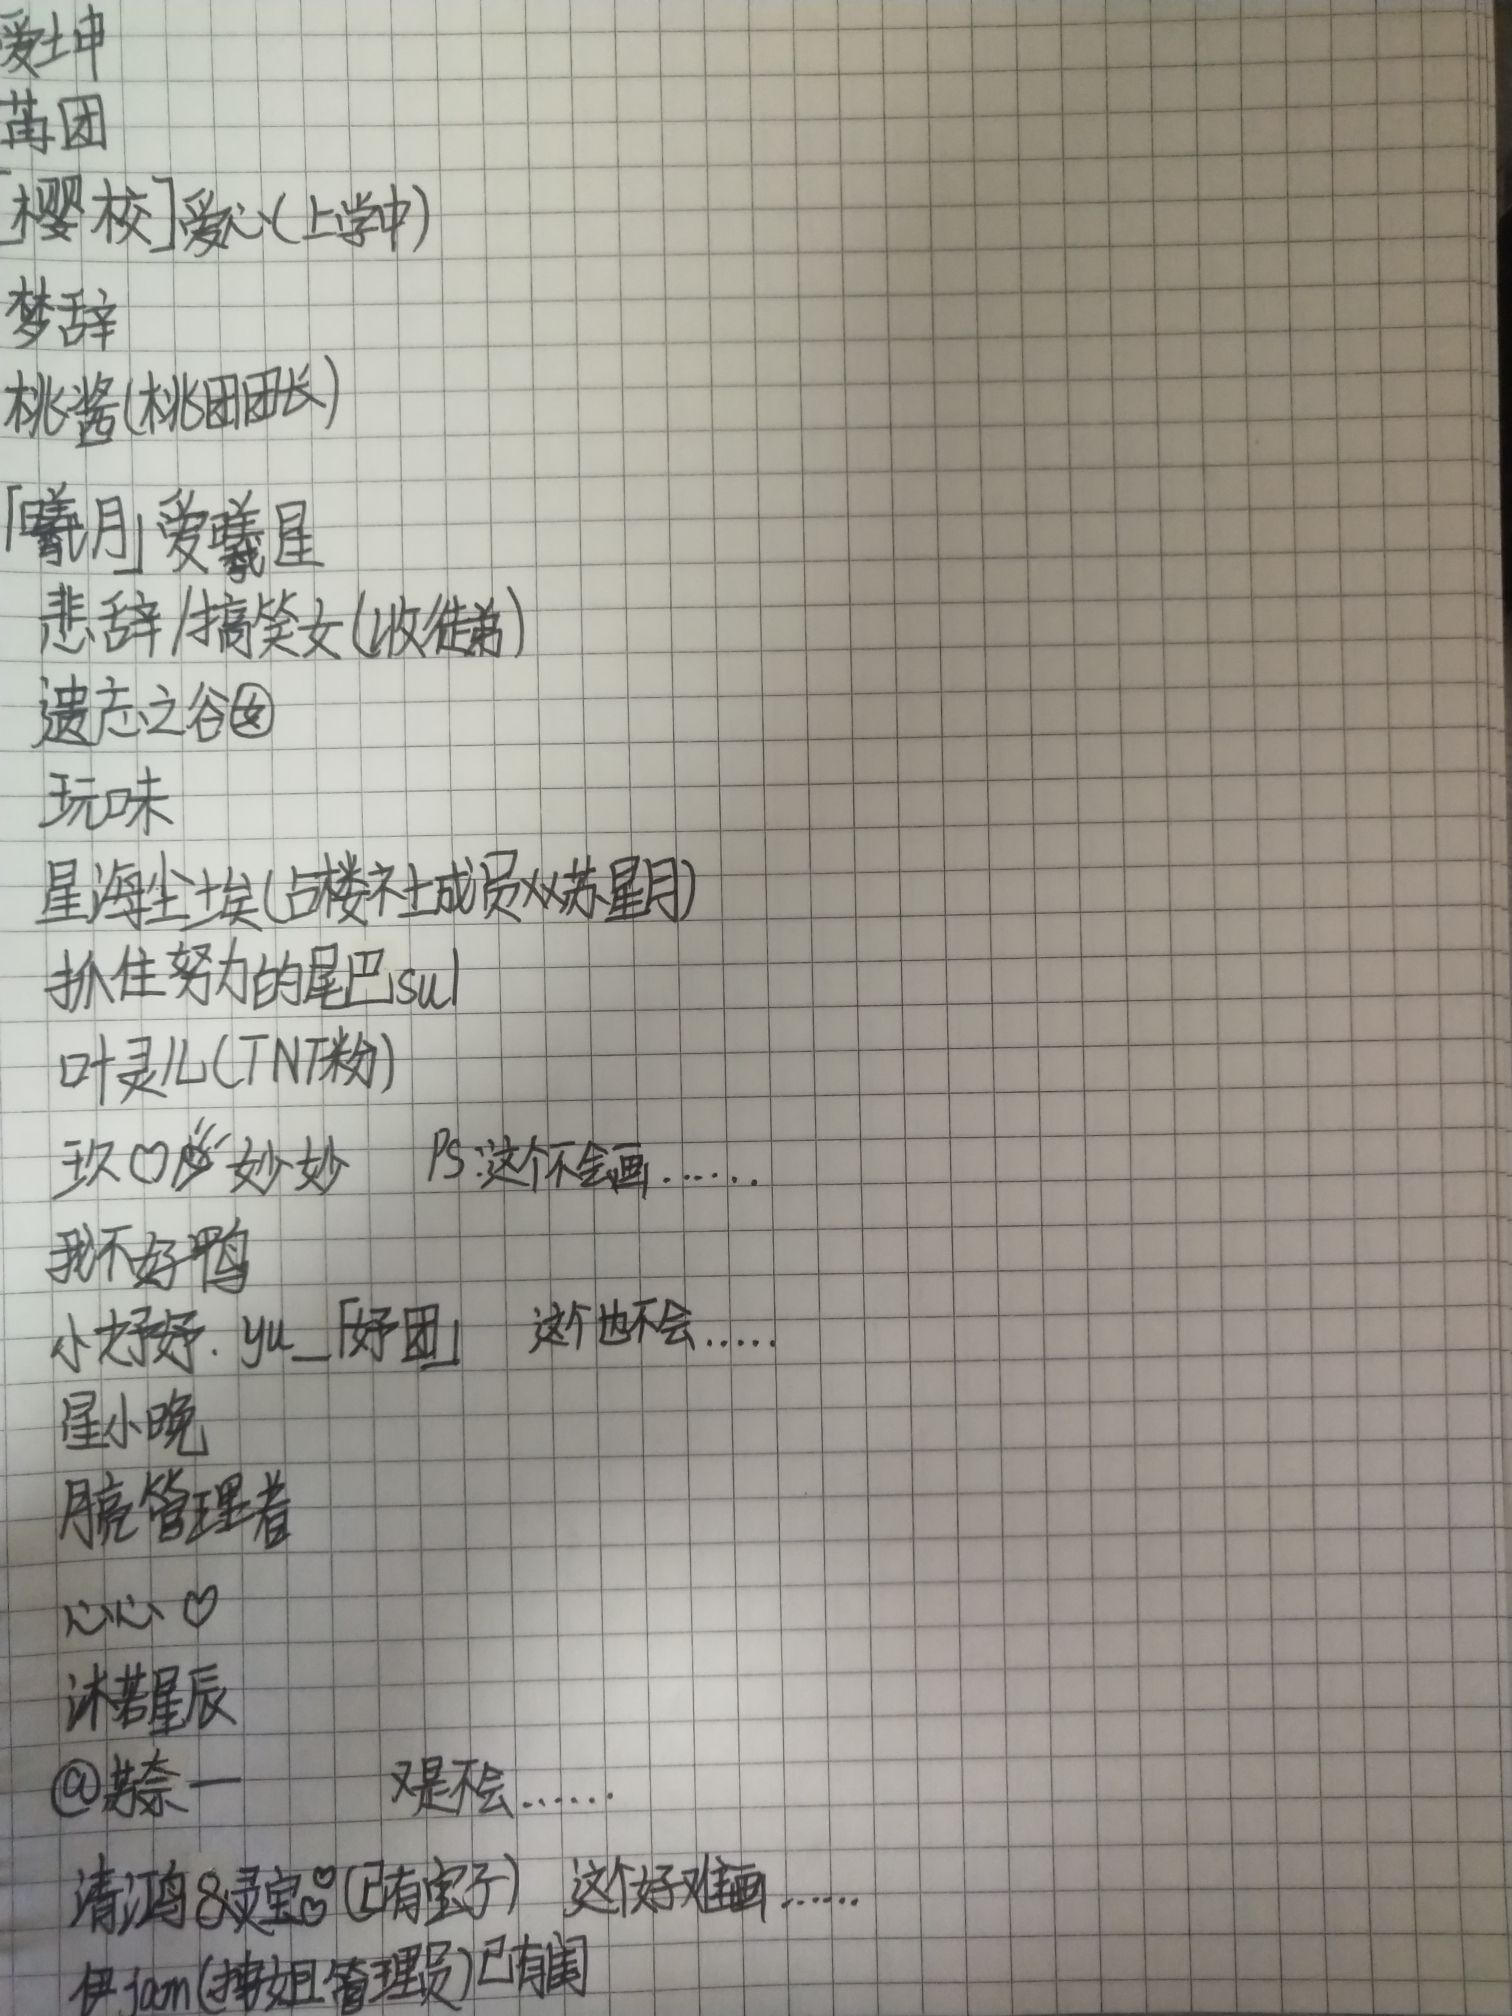 爱坤
苒团
[樱校]爱心(上学中)
梦辞
桃酱(桃团团长)
「曦月」爱曦星
悲辞/搞笑女(收徒弟)
遗忘之谷女
玩味
星海尘埃(占楼社成员xx苏星月)
抓住努力的尾巴sul
叶灵儿(TNT粉)
玖♡妙妙 PS:这个不会画......
我不好鸭
小妤妤.yu_「妤团」 这个也不会.....
星小晚
月亮管理者
心心♡
沐若星辰
@苏奈一 又是不会......
清鸿&灵宝(已有宝子) 这个好难画......
伊jam(姐管理员)已有闺